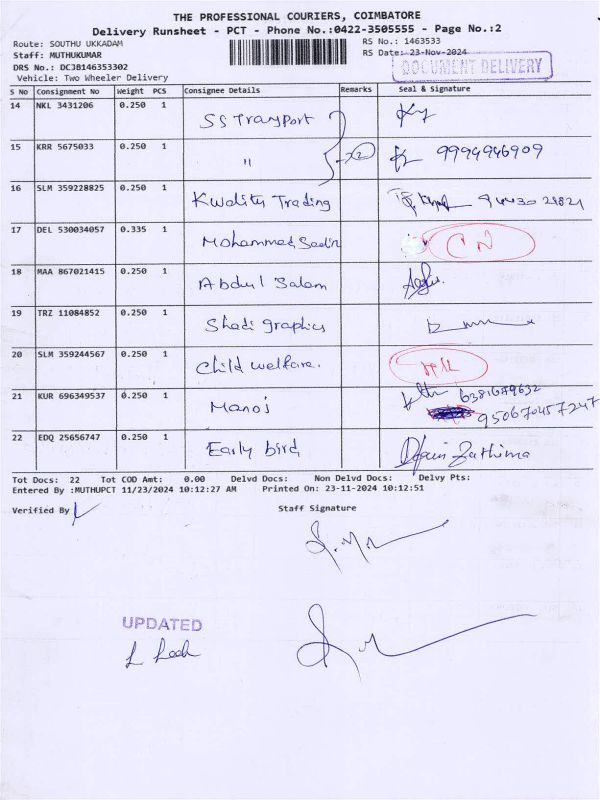 THE PROFESSIONAL COURIERS, COIMBATORE
Delivery Runsheet - PCT - Phone No.:0422-3505555 - Page No.:2
Route: SOUTHU UKKADAM RS No.: 1463533
Staff: MUTHUKUMAR RS Date: 23-Nov-2024
DRS No.: DCJB146353302 DOCUMENT DELIVERY
Vehicle: Two Wheeler Delivery
S No Consignment No Weight PCS Consignee Details Remarks Seal & Signature
14 NKL 3431206 0.250 1 SS Transport
15 KRR 5675033 0.250 1 " x2 9994946909
16 SLM 359228825 0.250 1 Kwality Trading
17 DEL 530034057 0.335 1 Mohammed CN
18 MAA 867021415 0.250 1 Abdul Salam
19 TRZ 11084852 0.250 1 Shadi graphics
20 SLM 359244567 0.250 1 Child welfare.
21 KUR 696349537 0.250 1 Manoj 6381679632
950670457247
22 EDQ 25656747 0.250 1 Early bird Fathima
Tot Docs: 22 Tot COD Amt: 0.00 Delvd Docs: Non Delvd Docs: Delvy Pts:
Entered By :MUTHUPCT 11/23/2024 10:12:27 AM Printed On: 23-11-2024 10:12:51
Verified By Staff Signature
UPDATED